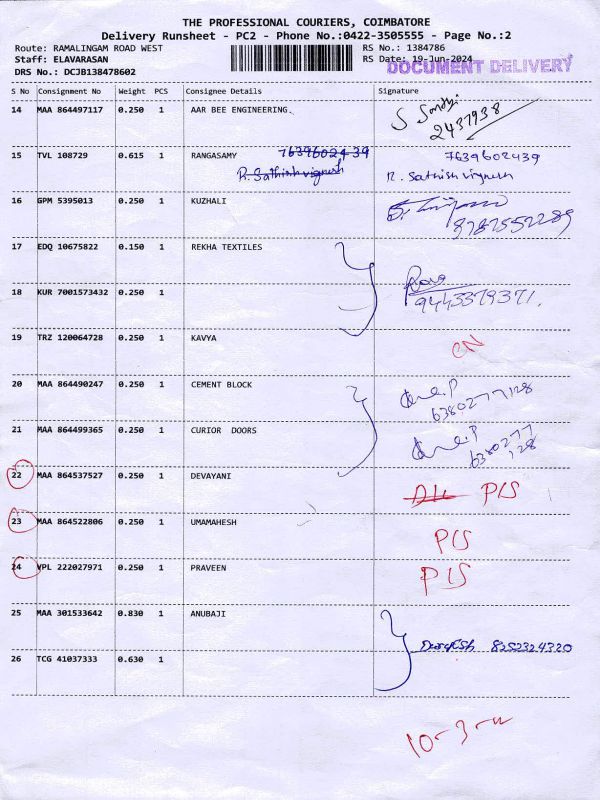 THE PROFESSIONAL COURIERS, COIMBATORE
Delivery Runsheet - PC2 - Phone No.:0422-3505555 - Page No.:2
Route: RAMALINGAM ROAD WEST RS No.: 1384786
Staff: ELAVARASAN RS Date: 19-Jun-2024
DOCUMENT DELIVERY
DRS No.: DCJB138478602
S No Consignment No Weight PCS Consignee Details Signature
14 MAA 864497117 0.250 1 AAR BEE ENGINEERING.
2437938
15 TVL 108729 0.615 1 RANGASAMY 7639602439 7639602439
R. Sathish vignesh R. Sathish vignesh
16 GPM 5395013 0.250 1 KUZHALI
8787552289
17 EDQ 10675822 0.150 1 REKHA TEXTILES
18 KUR 7001573432 0.250 1 9443379371.
19 TRZ 120064728 0.250 1 KAVYA CN
20 MAA 864490247 0.250 1 CEMENT BLOCK
6380277128
21 MAA 864499365 0.250 1 CURIOR DOORS
6380277
128
22 MAA 864537527 0.250 1 DEVAYANI PIS
23 MAA 864522806 0.250 1 UMAMAHESH PIS
24 VPL 222027971 0.250 1 PRAVEEN PIS
25 MAA 301533642 0.830 1 ANUBAJI
8252324320
26 TCG 41037333 0.630 1
10-3-